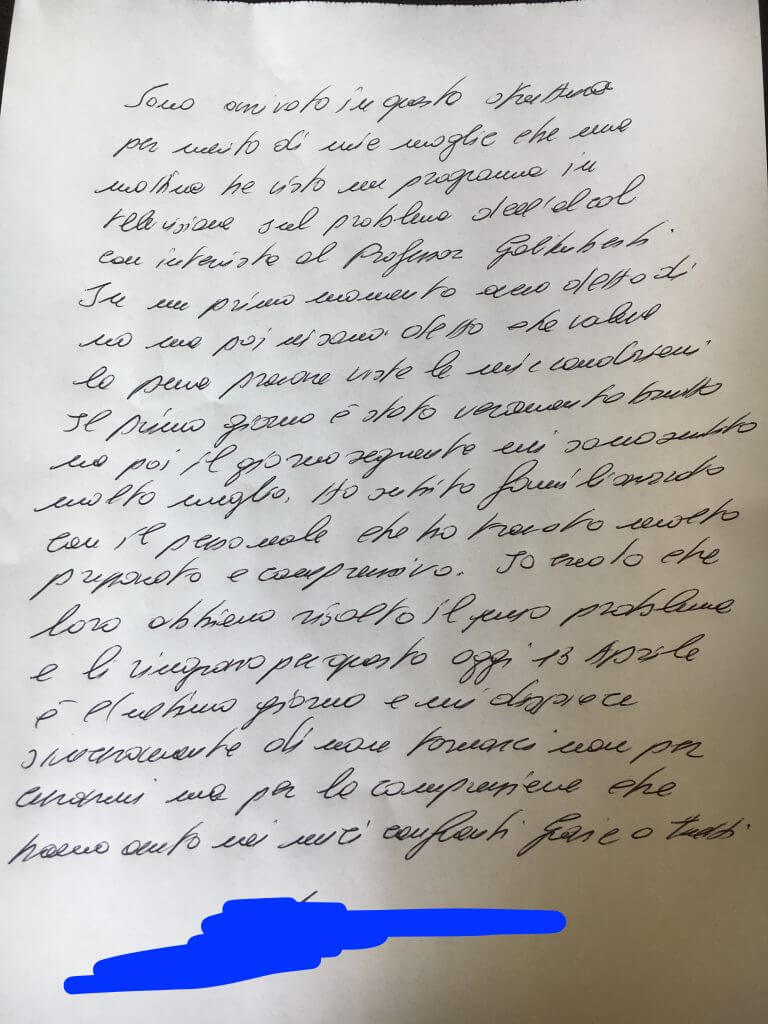 Sono arrivato in questo struttura
per merito di mie moglie che una
mattina ha visto un programma in
televisione sul problema dell'alcol
con intervista al Professor Galimberti.
In un primo momento avevo detto di
no ma poi mi sono detto che valeva
la pena provare viste le mie condizioni
Il primo giorno è stato veramente brutto
ma poi il giorno seguente mi sono sentito
molto meglio. Ho subito familiarizzato
con il personale che ho trovato molto
preparato e comprensivo. Io credo che
loro abbiano risolto il mio problema
e li ringrazio per questo oggi 13 Aprile
è l'ultimo giorno e mi dispiace
sinceramente di non tornarci non per
curarmi ma per la comprensione che
hanno avuto nei miei confronti Grazie a tutti.